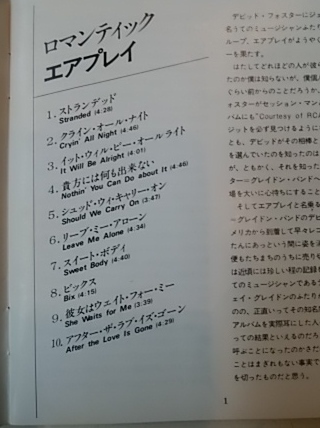 ロマンティック
エアプレイ
1. ストランデッド
Stranded (4:28)
2. クライン・オール・ナイト
Cryin' All Night (4:46)
3. イット・ウィル・ビー・オールライト
It Will Be Alright (4:01)
4. 貴方には何も出来ない
Nothin' You Can Do about It (4:46)
5. シュッド・ウィ・キャリー・オン
Should We Carry On (3:47)
6. リーブ・ミー・アローン
Leave Me Alone (4:34)
7. スイート・ボディ
Sweet Body (4:40)
8. ビックス
Bix (4:15)
9. 彼女はウェイト・フォー・ミー
She Waits for Me (3:39)
10. アフター・ザ・ラブ・イズ・ゴーン
After the Love Is Gone (4:29)
デビッド・フォスターにジェ
名うてのミュージシャンふたり
ループ、エアプレイがようやく
ーを果たす。
はたしてどれほどの人が彼ら
たのか僕は知らないが、僕個人
ぐらい前からのことだろうか。
ォスターがセッション・マン
バムにも"Courtesy of RCA
ジットを必ず見つけるように
とも、デビッドがその相棒と
を選んでいたのを知ったのは
が、ともかく、それを知った
ター=グレイドン・バンドへ
塔を大いに心待ちにすること
そしてエアプレイと名乗る
=グレイドン・バンドのデビ
メリカから到着して早々レコ
たんにあっという間に姿を消
便もたちまちのうちに売り切
は近頃には珍しい程の記録を
てのミュージシャンである
ェイ・グレイドンのふたりが
のの、正直いってその知名度
アルバムを実際耳にした人
っての結果といえるのだろ
呼ぶことになったのかさだ
ことはまぎれもない事実で
を切ったものだと思う。
1